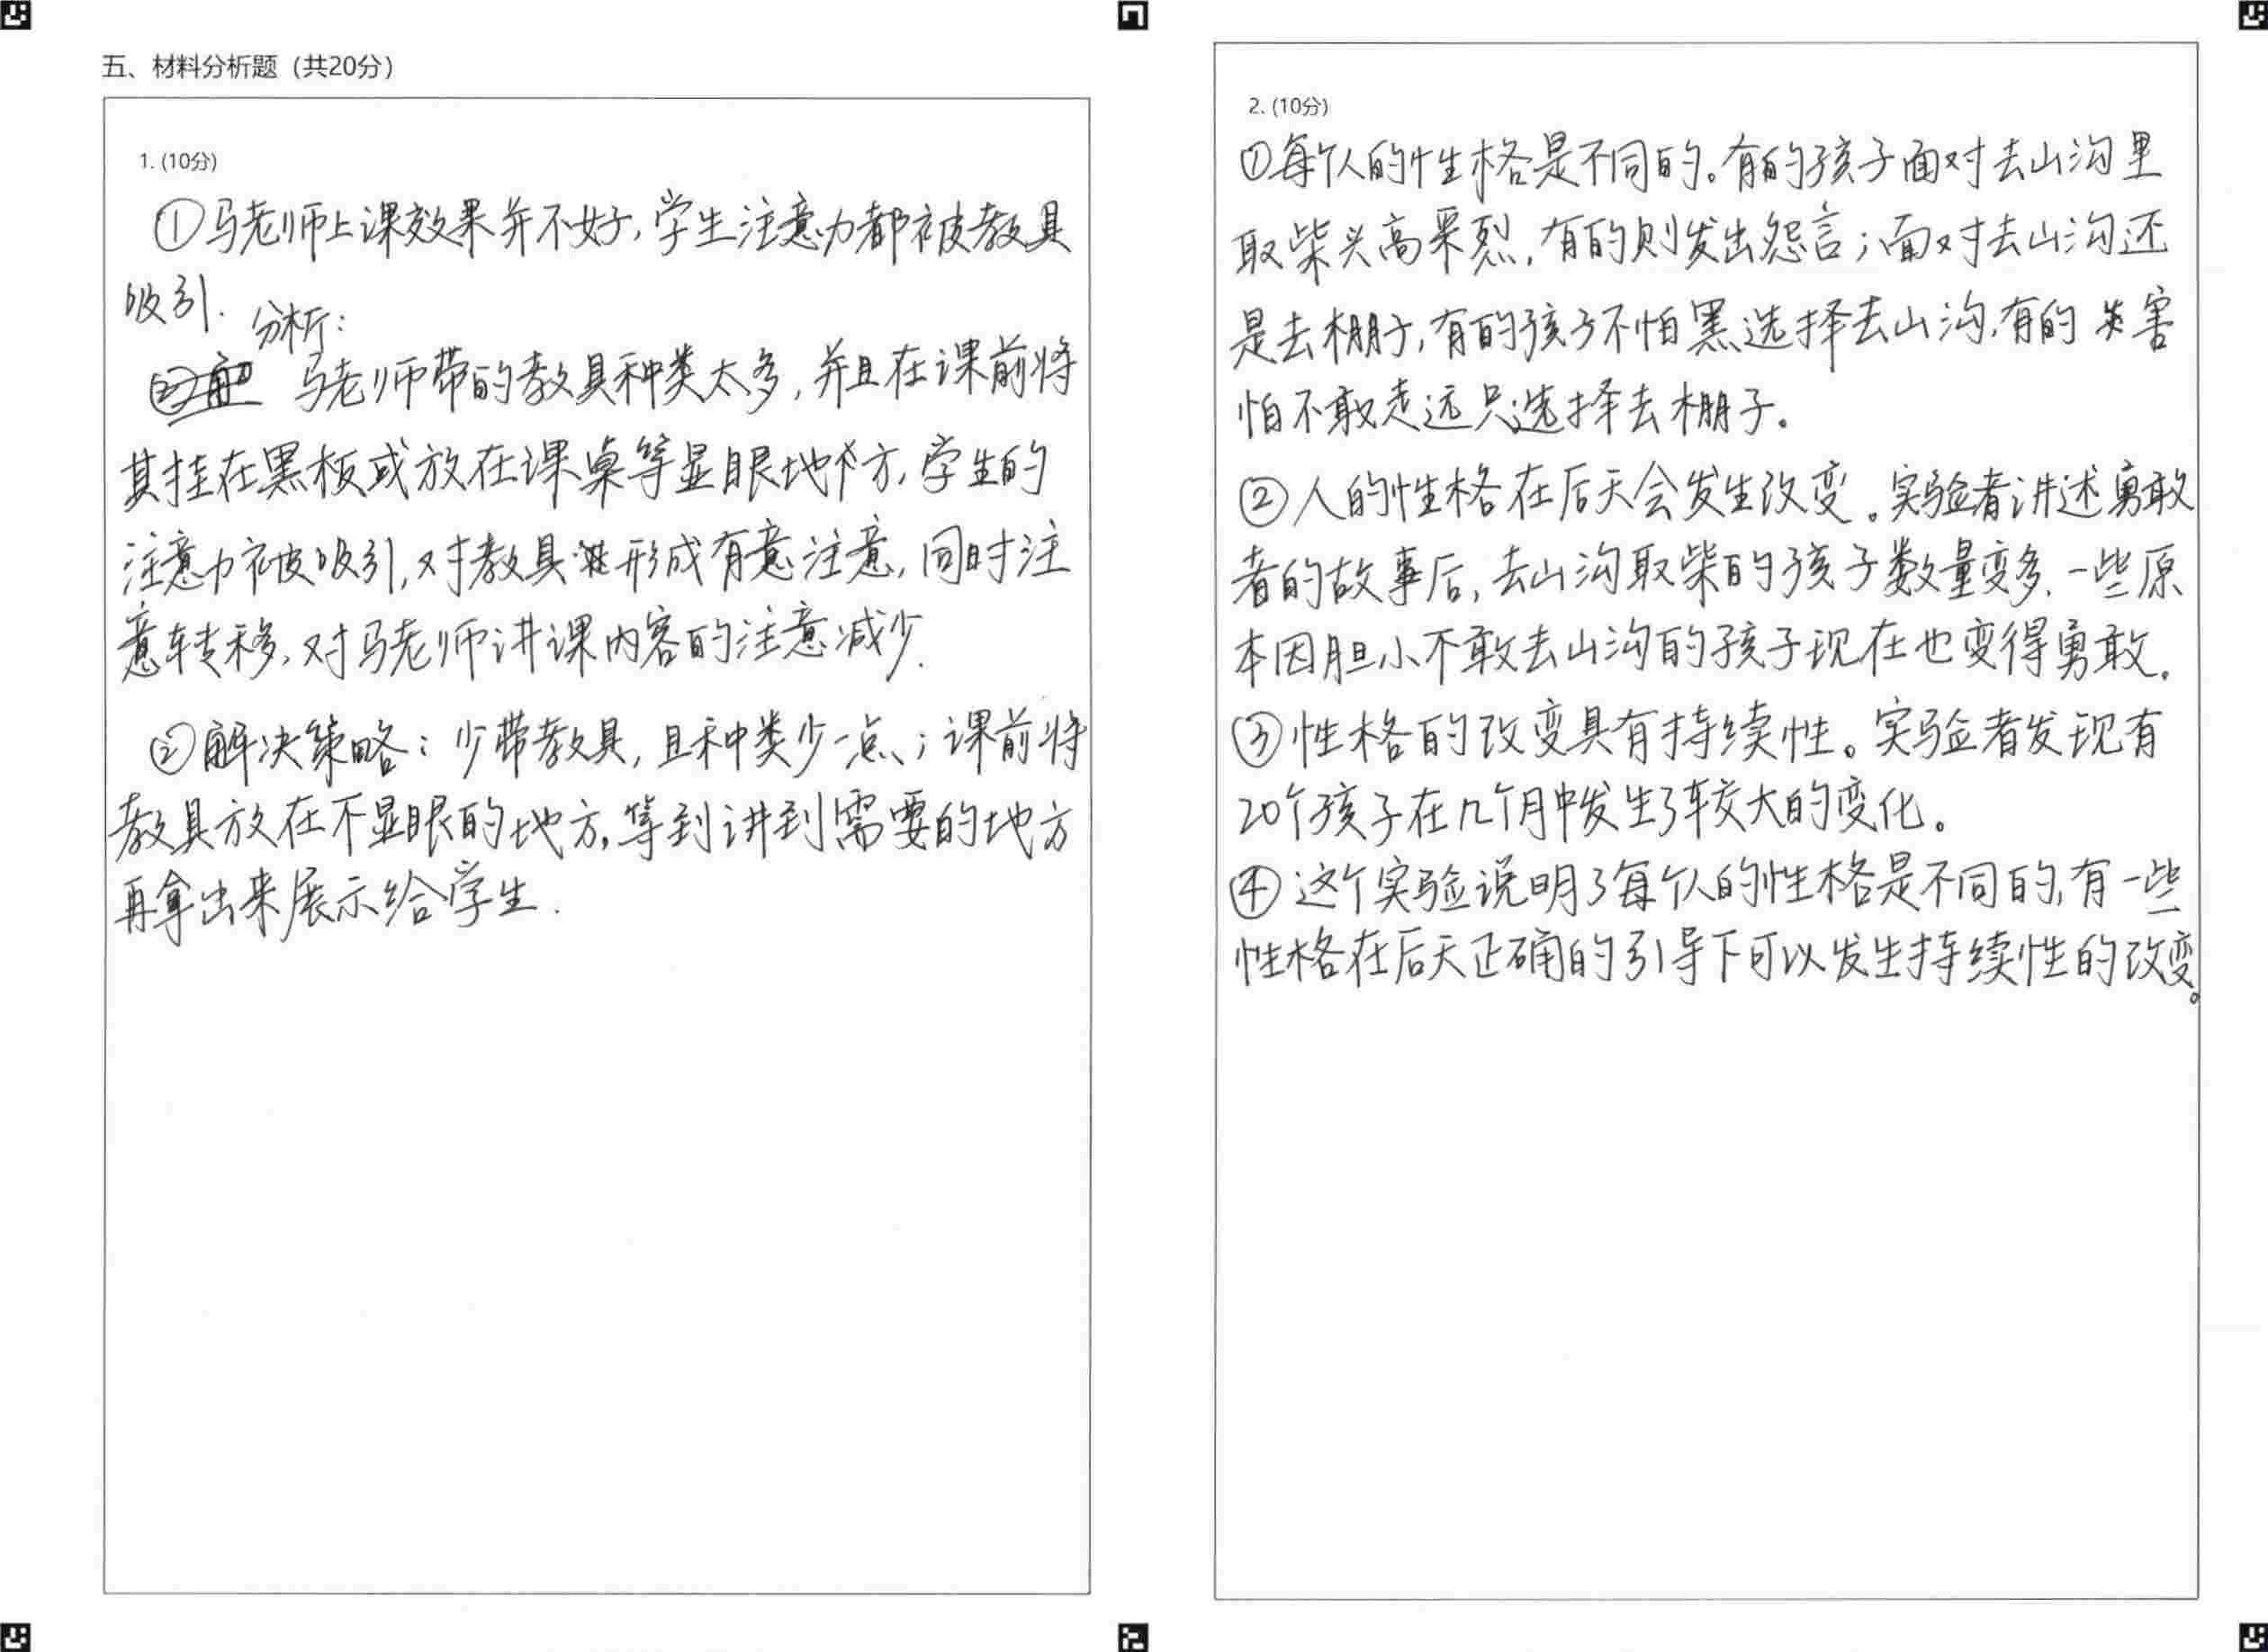 五、材料分析题（共20分）
1. (10分)
①马老师上课效果并不好,学生注意力都被教具
吸引.
分析:
马老师带的教具种类太多,并且在课前将
其挂在黑板或放在课桌等显眼地方,学生的
注意力被吸引,对教具形成有意注意,同时注
意转移,对马老师讲课内容的注意减少.
②解决策略:少带教具,且种类少一点;课前将
教具放在不显眼的地方,等到讲到需要的地方
再拿出来展示给学生.
2. (10分)
①每个人的性格是不同的。有的孩子面对去山沟里
取柴兴高采烈,有的则发出怨言;面对去山沟还
是去棚子,有的孩子不怕黑选择去山沟,有的害
怕不敢走远只选择去棚子。
②人的性格在后天会发生改变。实验者讲述勇敢
者的故事后,去山沟取柴的孩子数量变多,一些原
本因胆小不敢去山沟的孩子现在也变得勇敢。
③性格的改变具有持续性。实验者发现有
20个孩子在几个月中发生了较大的变化。
④这个实验说明了每个人的性格是不同的,有一些
性格在后天正确的引导下可以发生持续性的改变。